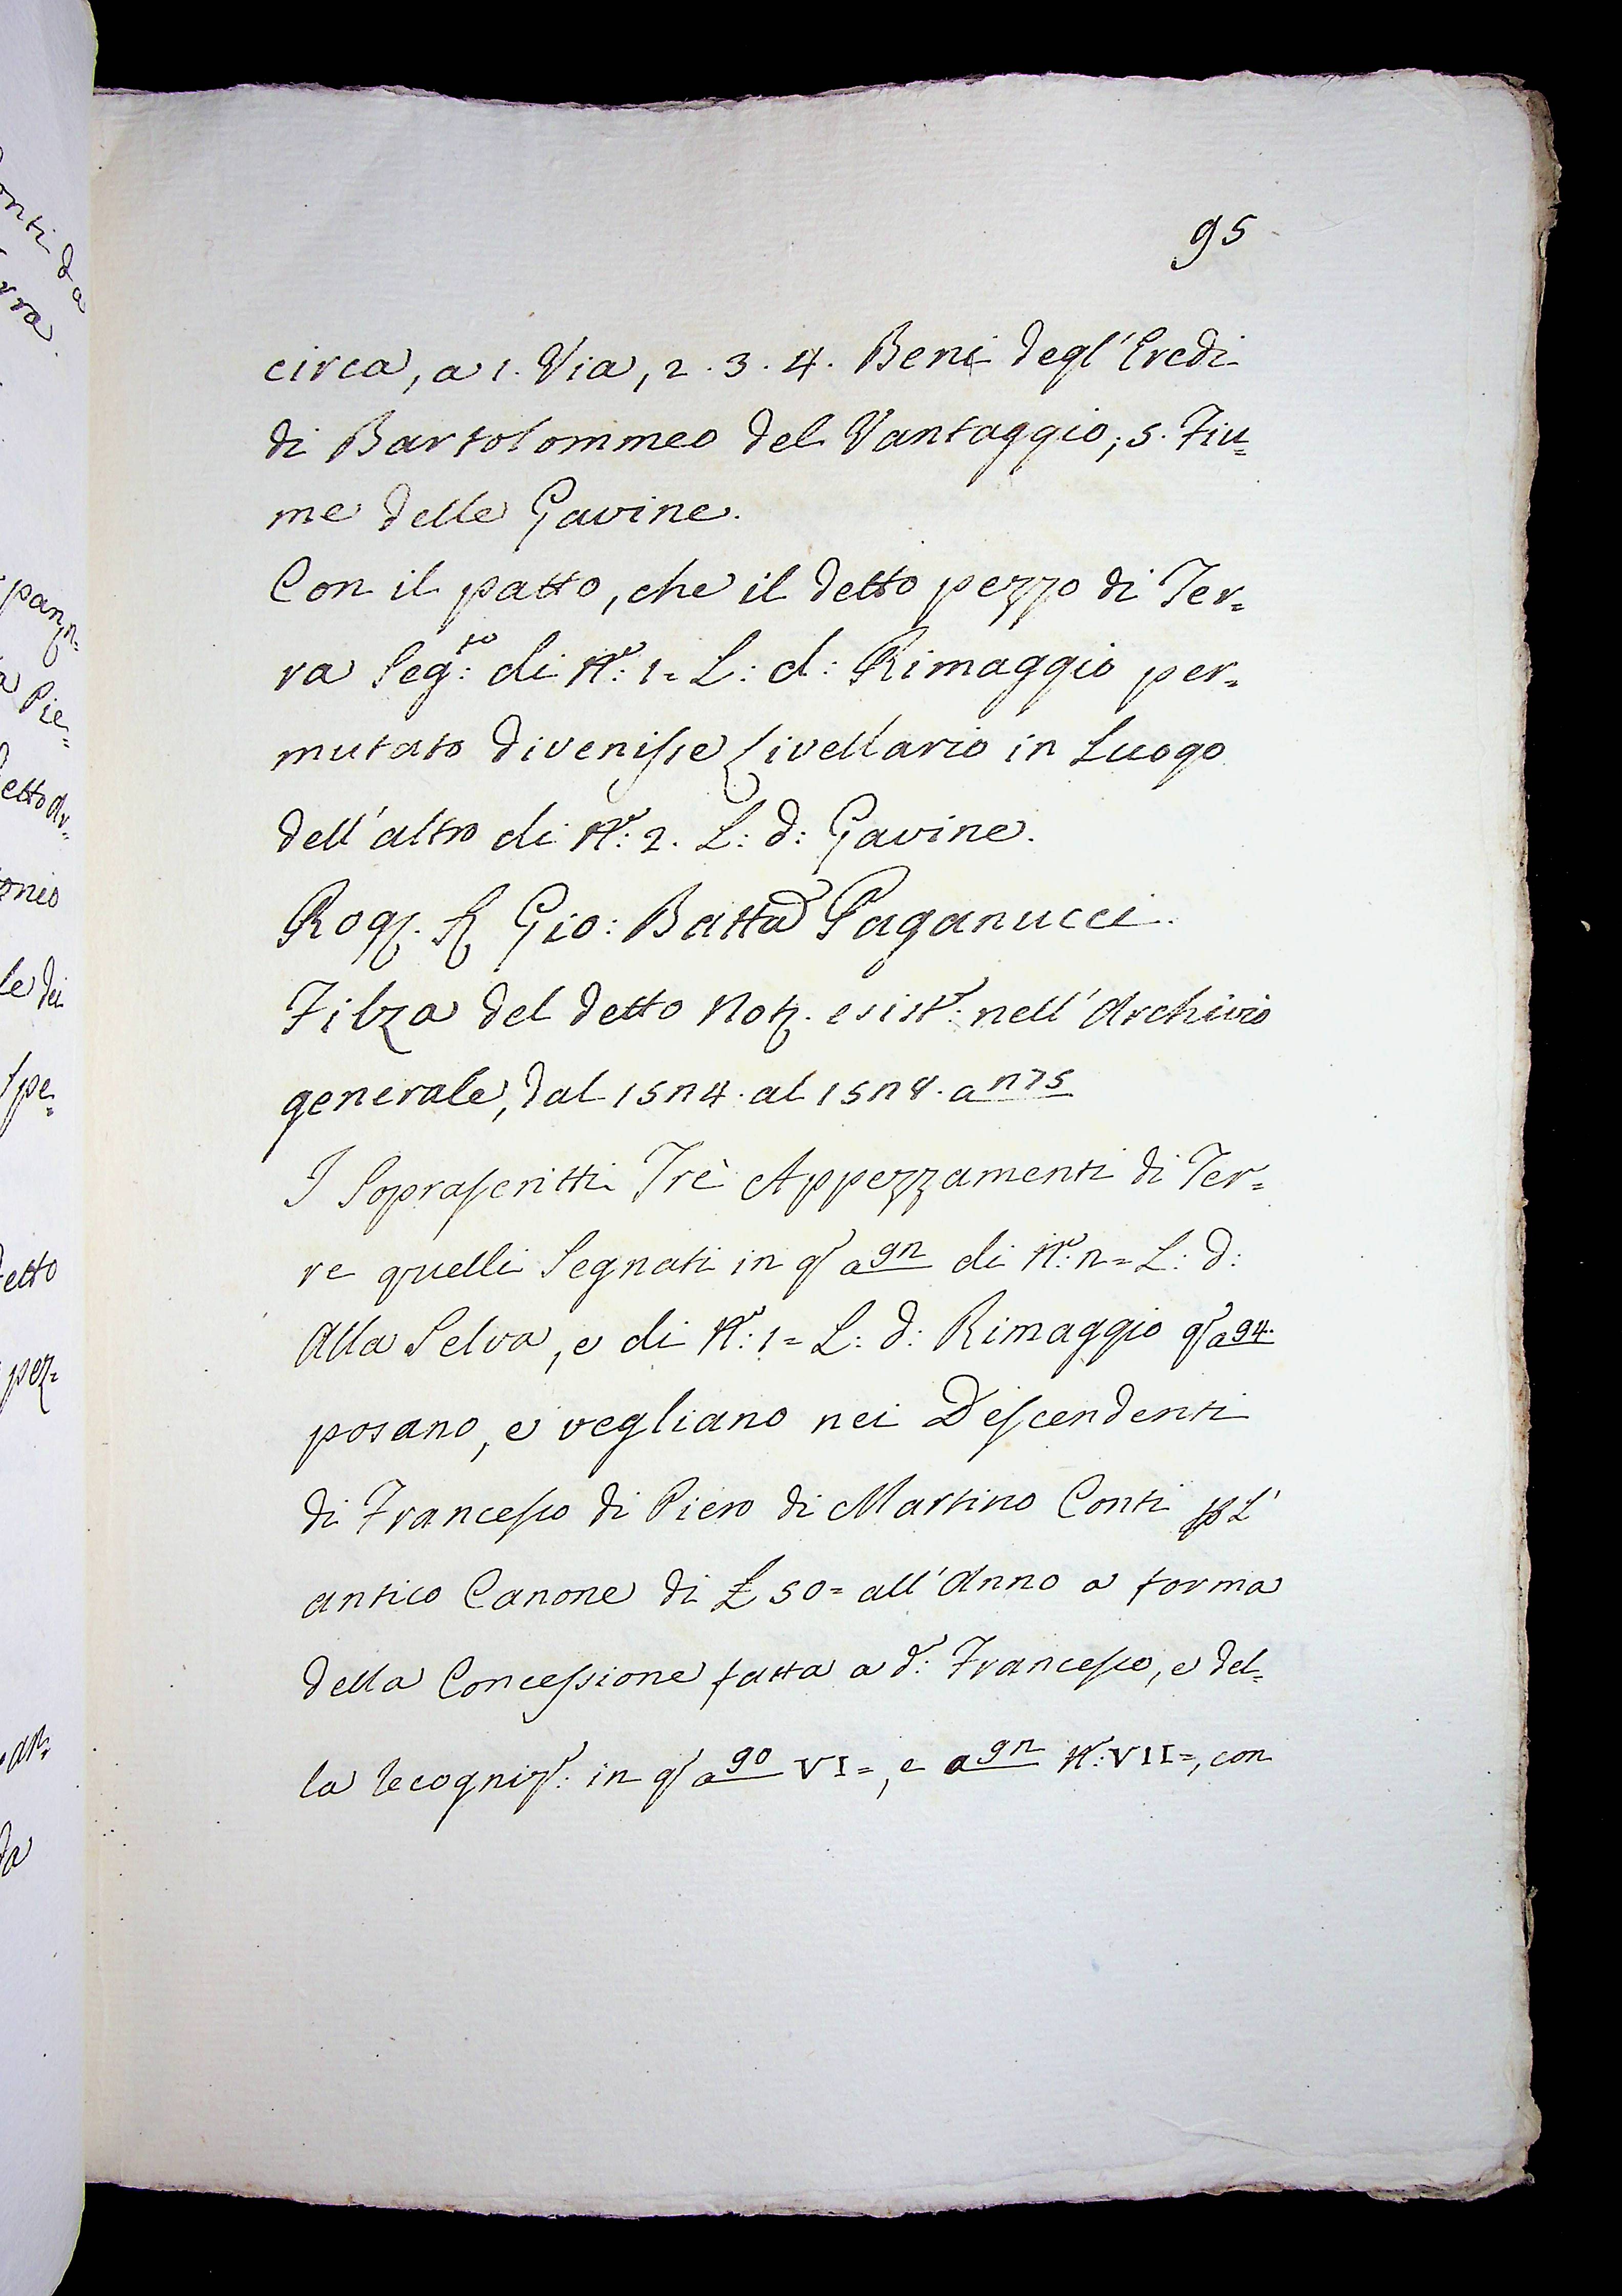 95
circa, a 1. Via, 2. 3. 4. Beni degl'Eredi
di Bartolommeo del Vantaggio; 5. Fiu=
me delle Gavine.
Con il patto, che il detto pezzo di Ter=
ra Seg:to di N:o 1= L: d: Rimaggio per=
mutato divenisse Livellario in Luogo
dell'altro di N:o 2. L: d: Gavine.
Rog. Gio: Batta Paganucci.
Filza del detto Not. esist: nell'Archivio
generale, dal 1574. al 1578. a 175
I Soprascritti Trè Appezzamenti di Ter=
re quelli Segnati in q a 92 di N:o 2= L: d:
Alla Selva, e di N:o 1= L: d: Rimaggio q a 94.
posano, e vegliano nei Descendenti
di Francesco di Piero di Martino Conti p L'
antico Canone di £ 50= all'Anno a forma
della Concessione fatta a d:o Francesco, e del=
la recogniz: in q a 90 VI=, e a 92 N:o VII=, con
onti da
rra.
Pie=
etto
onio
le dei
spe=
detto
pez=
da